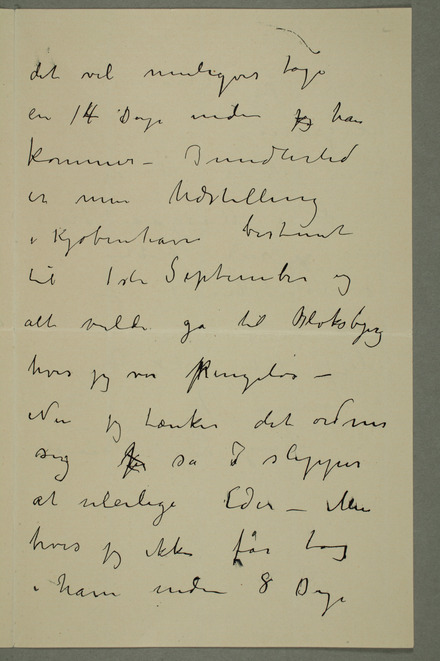 det vil muligvis tage
en 14 Dage inden han
kommer – Imidlertid
er min Udstilling
i Kjøbenhavn bestemt
til 1ste September og
alt vilde gå til Bloksbjerg
hvis jeg var Pengeløs –
Nu jeg tænker det ordner
sig så I slipper
at uleilige Eder – Men
hvis jeg ikke får tag
i ham inden 8 Dage